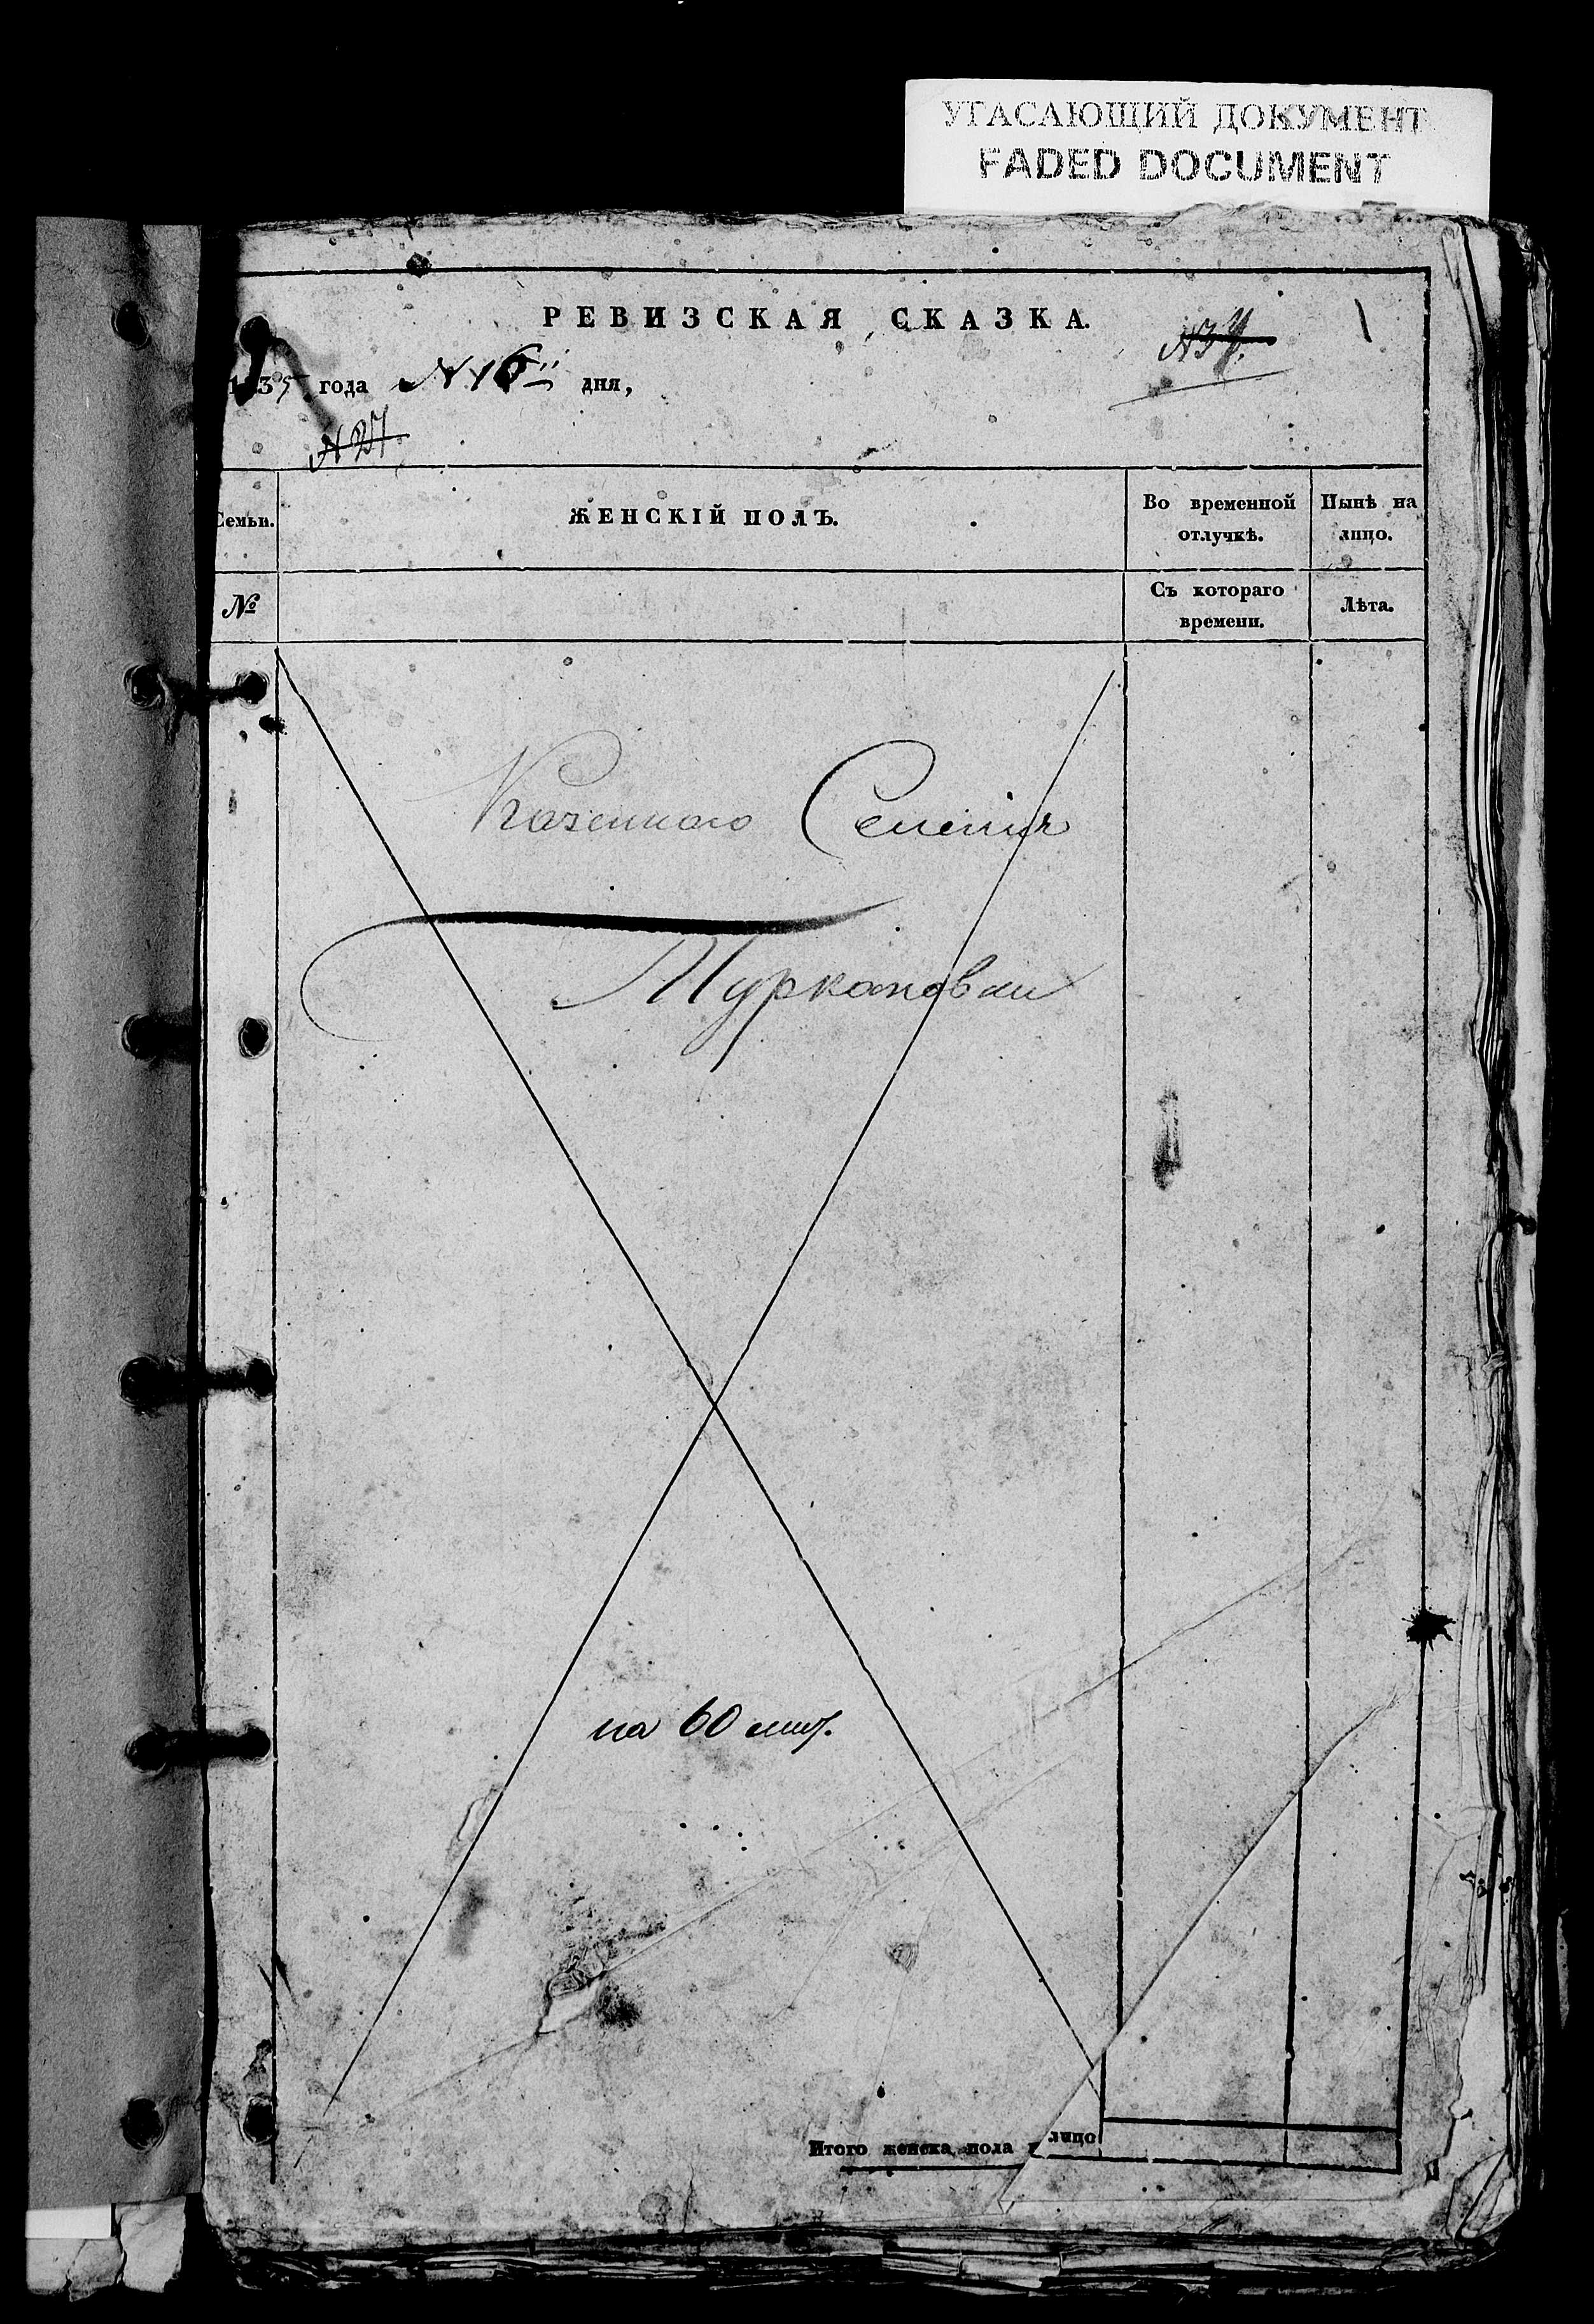 УГАСАЮЩИЙ ДОКУМЕНТ
FADED DOCUMENT
РЕВИЗСКАЯ СКАЗКА.
1835 года N 16 дня,
Семьи.
ЖЕНСКІЙ ПОЛЪ.
Во временной отлучкѣ.
Нынѣ на лицо.
№
Съ котораго времени.
Лѣта.
Казеннаго Селенія
на 60 лист.
Итого женска пола лицо